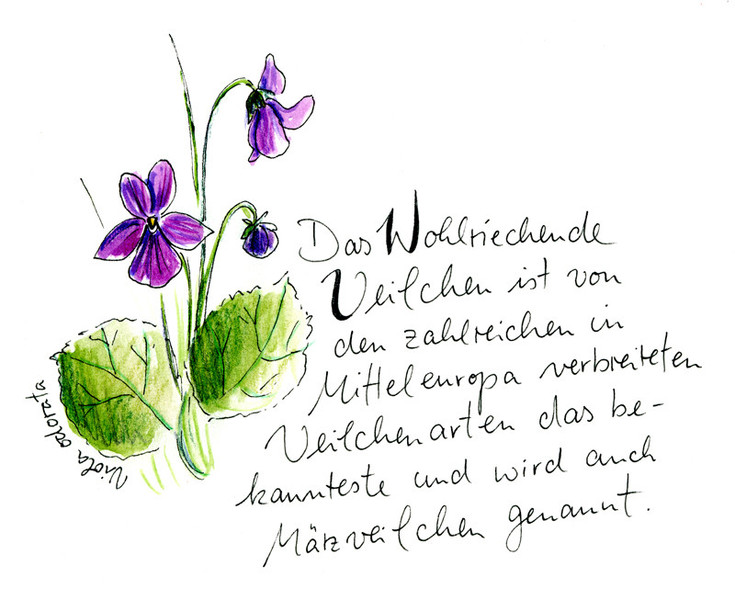 Das Wohlriechende
Veilchen ist von
den zahlreichen in
Mitteleuropa verbreiteten
Veilchenarten das be-
kannteste und wird auch
Märzveilchen genannt.
Viola odorata